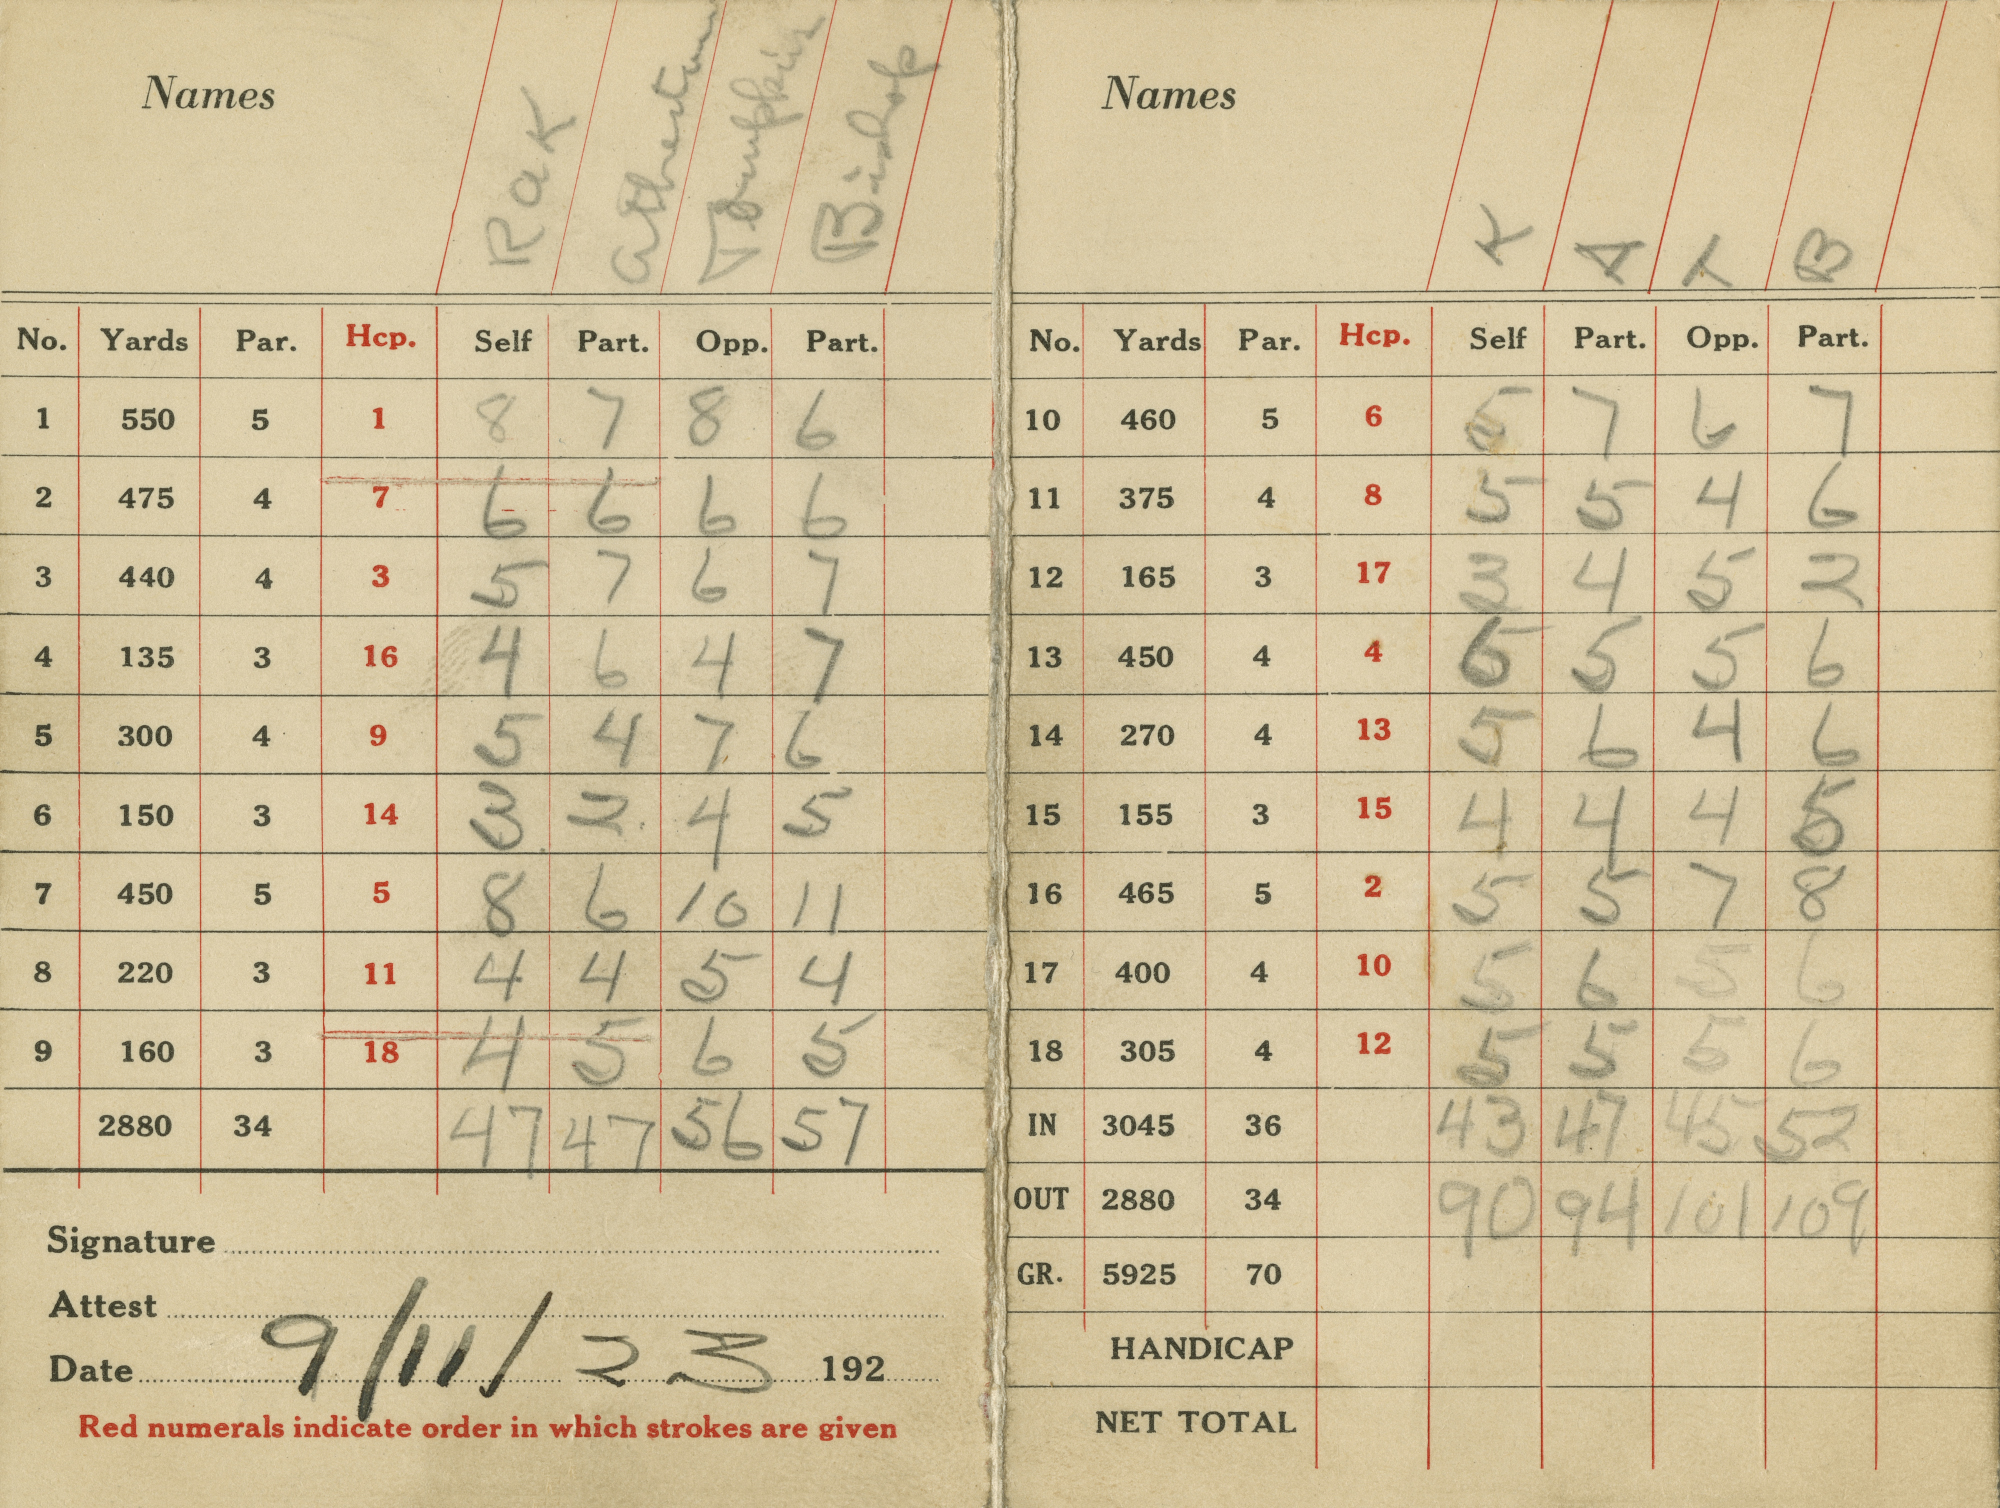 Names
RAK
Atherton
Tompkins
Bishop
No. Yards Par. Hcp. Self Part. Opp. Part.
1 550 5 1 8 7 8 6
2 475 4 7 6 6 6 6
3 440 4 3 5 7 6 7
4 135 3 16 4 6 4 7
5 300 4 9 5 4 7 6
6 150 3 14 3 2 4 5
7 450 5 5 8 6 10 11
8 220 3 11 4 4 5 4
9 160 3 18 4 5 6 5
2880 34 47 47 56 57
Signature
Attest
Date 9/11/23 192
Red numerals indicate order in which strokes are given
Names
K
A
T
B
No. Yards Par. Hcp. Self Part. Opp. Part.
10 460 5 6 5 7 6 7
11 375 4 8 5 5 4 6
12 165 3 17 3 4 5 2
13 450 4 4 6 5 5 6
14 270 4 13 5 6 4 6
15 155 3 15 4 4 4 5
16 465 5 2 5 5 7 8
17 400 4 10 5 6 5 6
18 305 4 12 5 5 5 6
IN 3045 36 43 47 45 52
OUT 2880 34 90 94 101 109
GR. 5925 70
HANDICAP
NET TOTAL